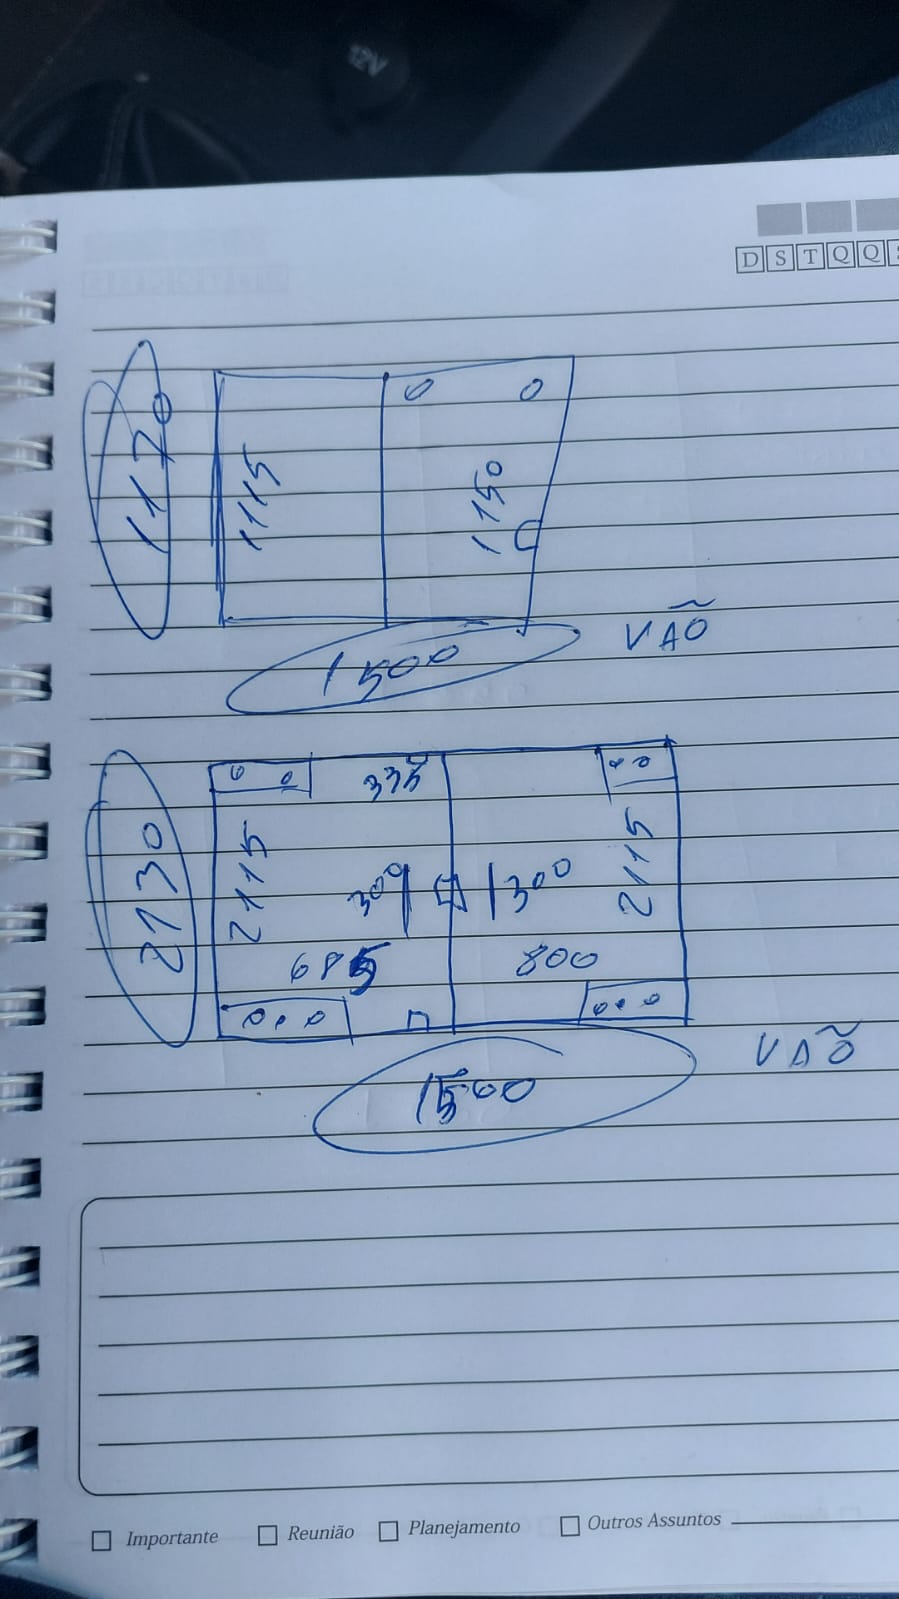 D S T Q Q
1170
1115
1150
1500
VÃO
335
2130
2115
2115
300
1300
685
800
1500
VÃO
Importante Reunião Planejamento Outros Assuntos